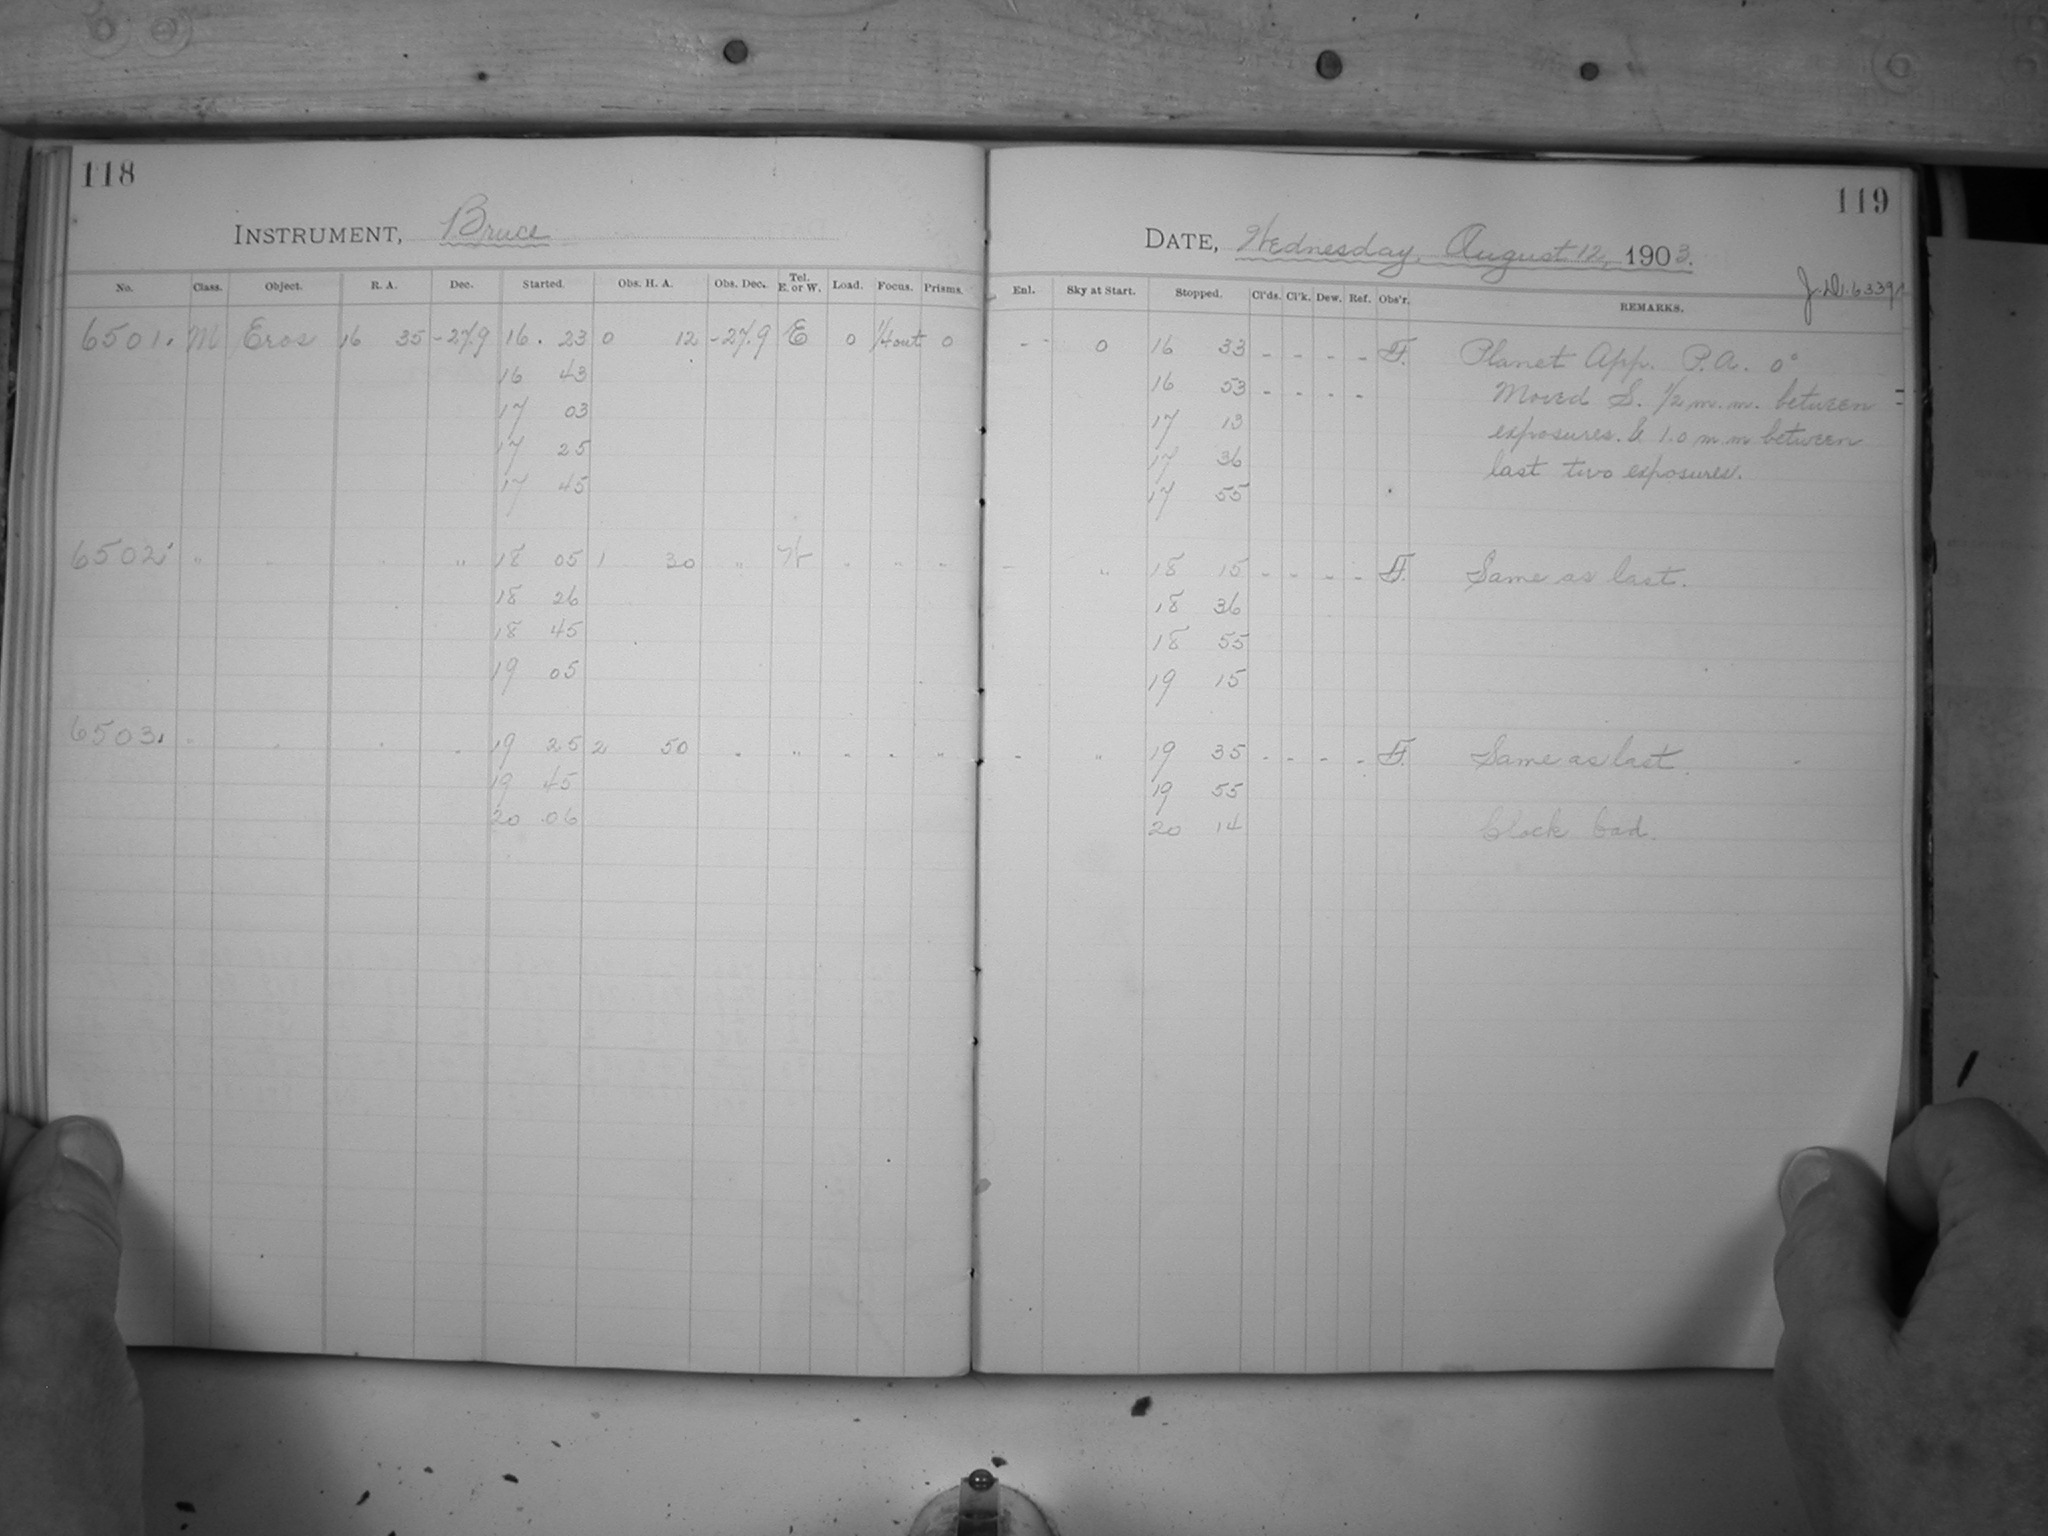 118
INSTRUMENT, Bruce
No. Class. Object. R. A. Dec. Started. Obs. H. A. Obs. Dec. Tel. E. or W. Load. Focus. Prisms.
6501. M Eros 16 35 -27.9 16. 23 0 12 -27.9 E 0 1/4 out 0
16 43
17 03
17 25
17 45
6502. " " " " 18 05 1 30 " W " " "
18 26
18 45
19 05
6503. " " " " 19 25 2 50 " " " " "
19 45
20 06
119
DATE, Wednesday, August 12, 1903.
Enl. Sky at Start. Stopped. Cl'ds. Cl'k. Dew. Ref. Obs'r. REMARKS.
- 0 16 33 - - - - F. Planet App. P.A. 0°
16 53 - - - - Moved S. 1/2 m.m. between
17 13 exposures. & 1.0 m.m between
17 36 last two exposures.
17 55
- " 18 15 - - - - F. Same as last.
18 36
18 55
19 15
- " 19 35 - - - - F. Same as last.
19 55
20 14 Clock bad.